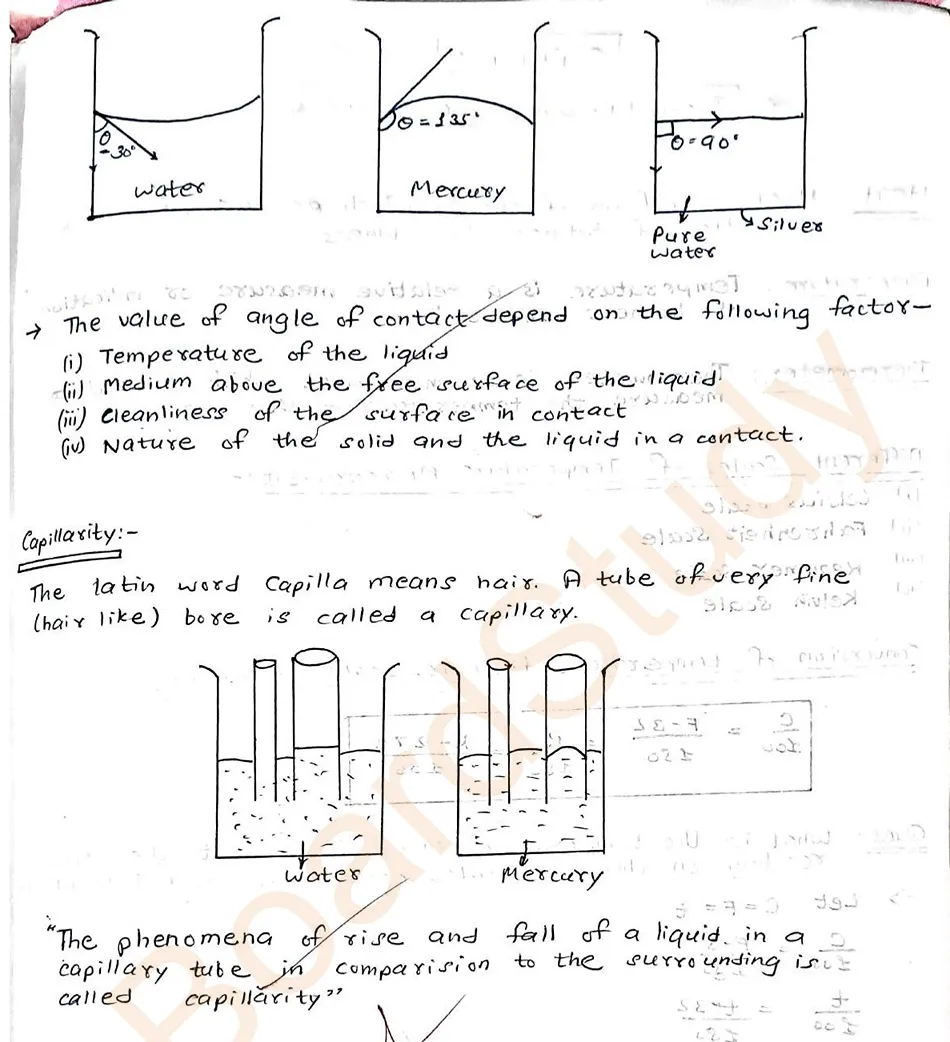 θ
-30°
Water
θ = 135°
Mercury
θ = 90°
Pure
water
Silver
→ The value of angle of contact depend on the following factor-
(i) Temperature of the liquid
(ii) Medium above the free surface of the liquid.
(iii) Cleanliness of the surface in contact
(iv) Nature of the solid and the liquid in a contact.
Capillarity:-
The latin word Capilla means hair. A tube of very fine
(hair like) bore is called a capillary.
Water
Mercury
"The phenomena of rise and fall of a liquid in a
capillary tube in comparision to the surrounding is
called capillarity"
BoardStudy